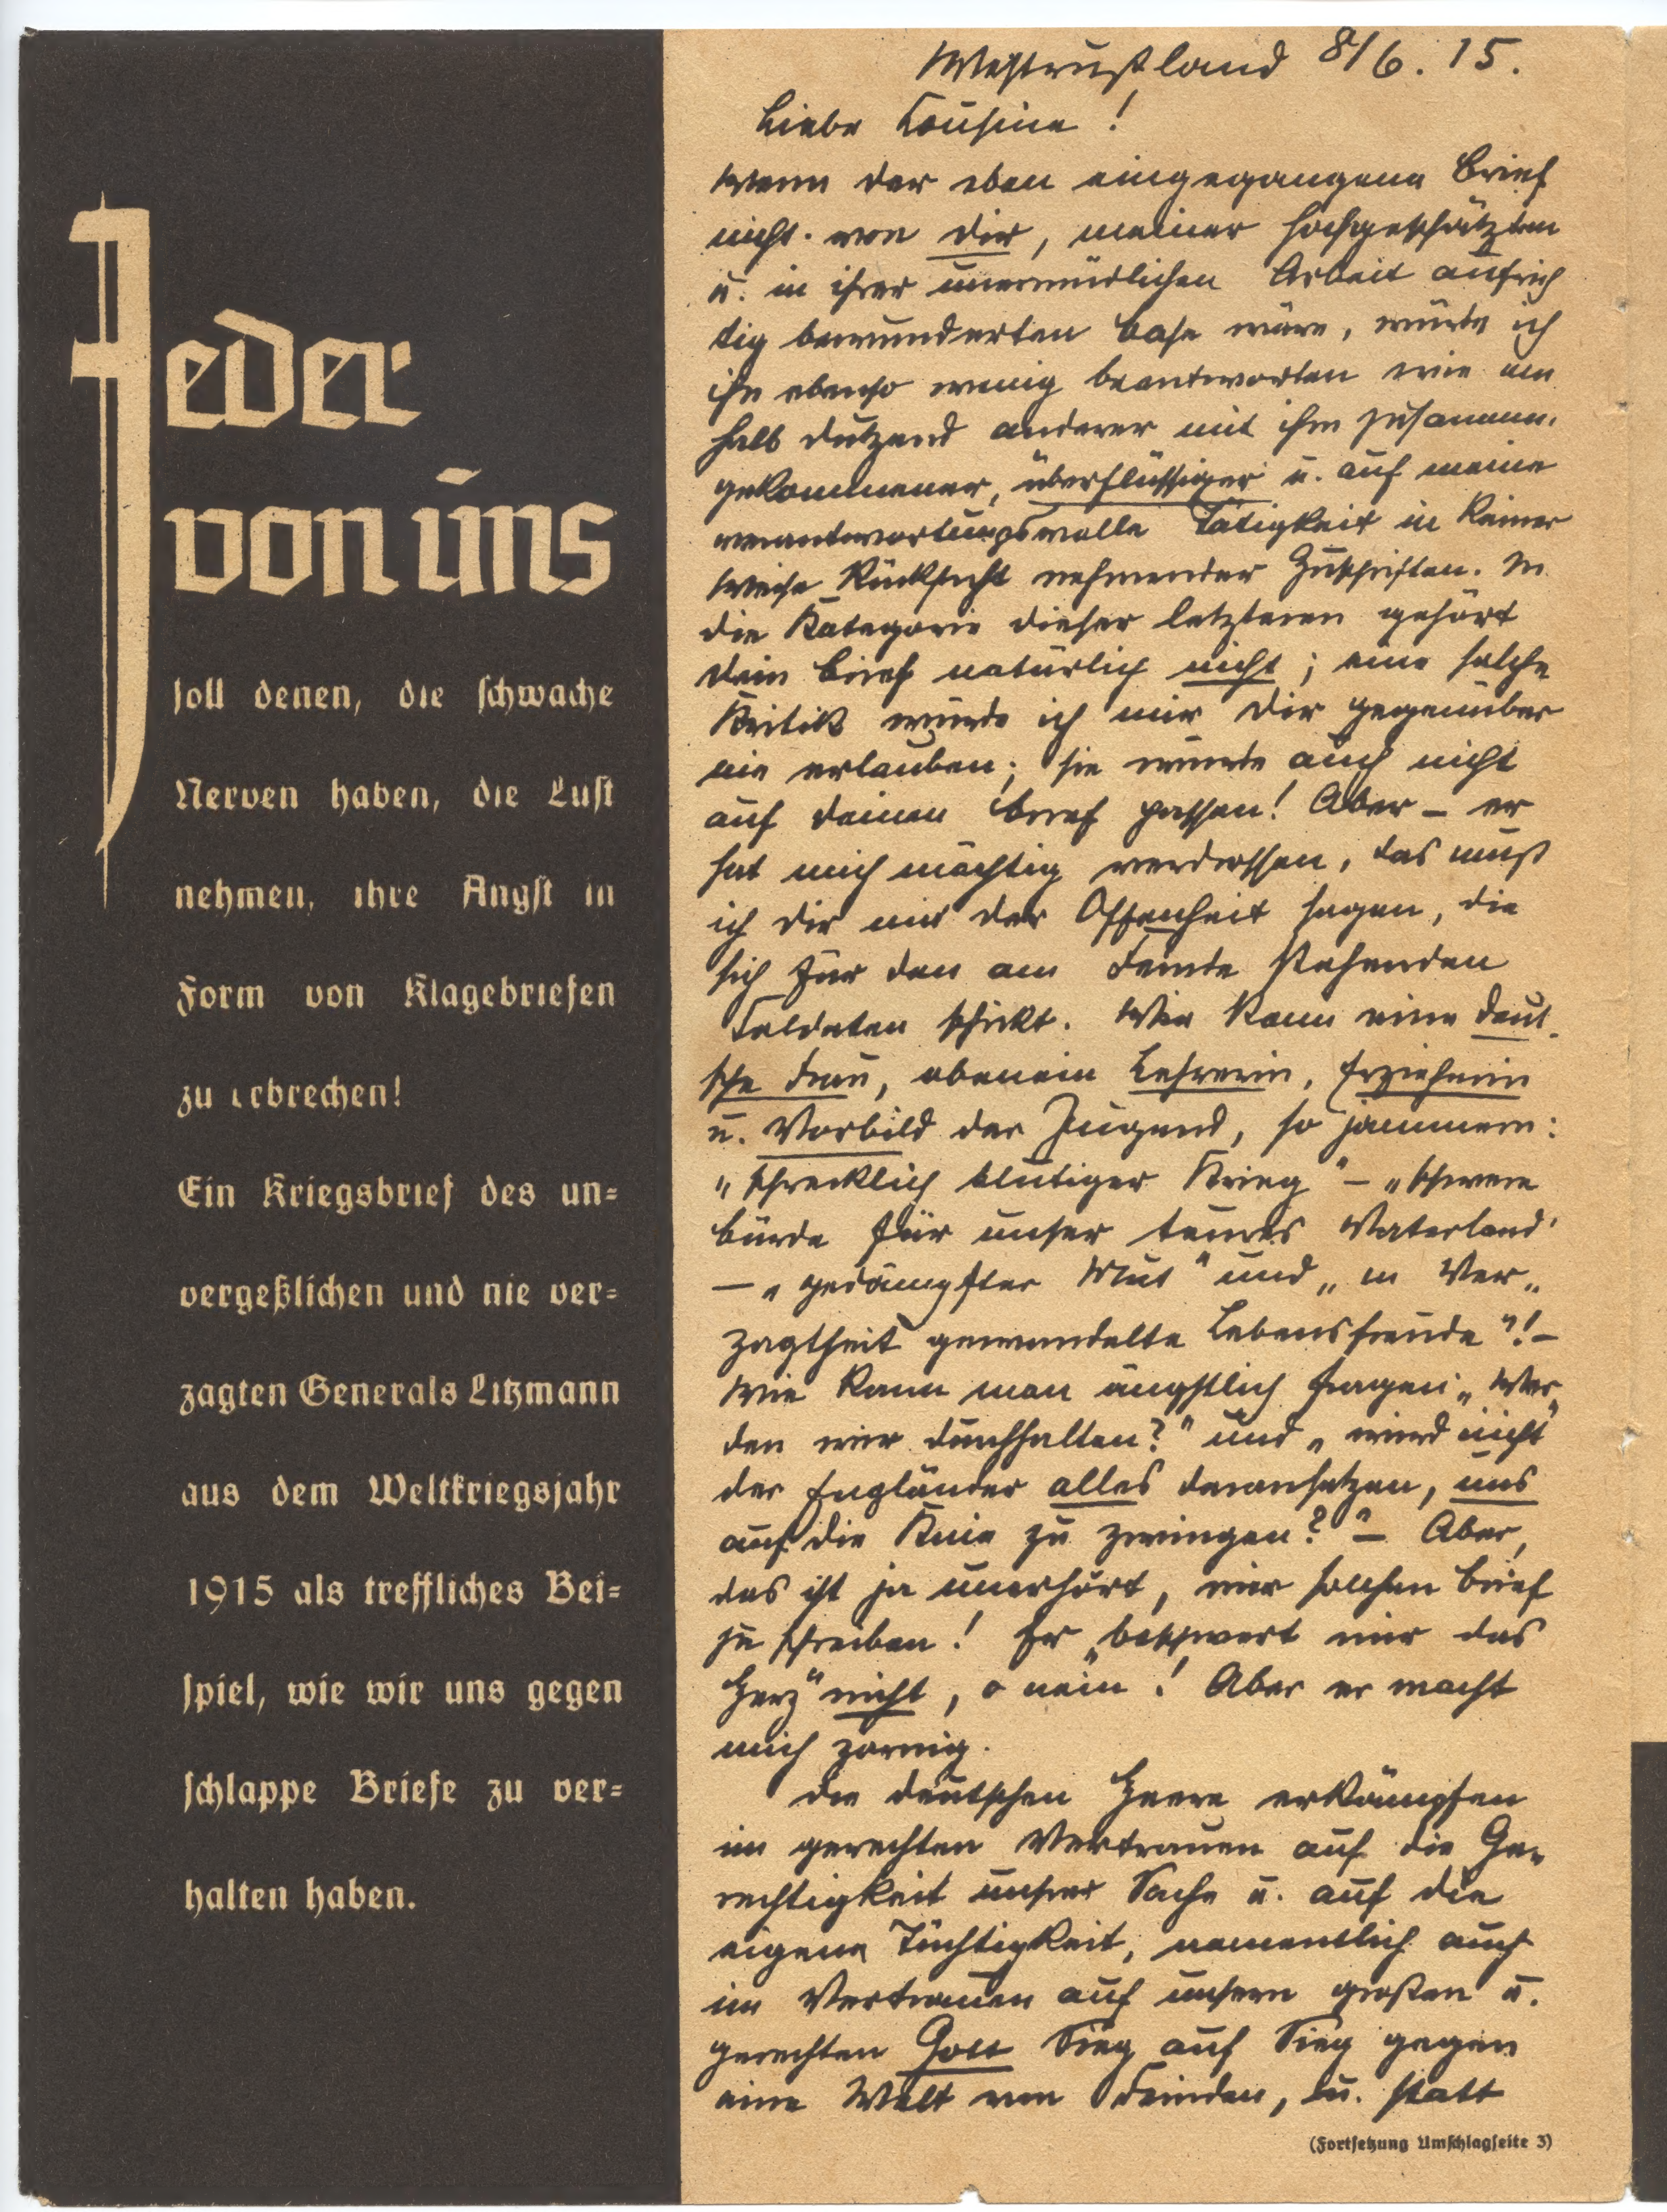 Jeder
von uns
soll denen, die schwache
Nerven haben, die Lust
nehmen, ihre Angst in
Form von Klagebriefen
zu erbrechen!
Ein Kriegsbrief des un=
vergeßlichen und nie ver=
zagten Generals Litzmann
aus dem Weltkriegsjahr
1915 als treffliches Bei=
spiel, wie wir uns gegen
schlappe Briefe zu ver=
halten haben.
Westrußland 8/6. 15.
Liebe Cousine!
Wenn der eben eingegangene Brief
nicht von Dir, meiner hochgeschätzten
u. in ihrer unermüdlichen Arbeit aufrich
tig bewunderten Base wäre, würde ich
ihn ebenso wenig beantworten wie ein
halb Dutzend anderer mit ihm zusammen-
gekommener, überflüssiger u. auf meine
verantwortungsvolle Tätigkeit in keiner
Weise Rücksicht nehmender Zuschriften. In
die Kategorie dieser letzteren gehört
Dein Brief natürlich nicht; eine solche
Kritik würde ich mir Dir gegenüber
nie erlauben; sie würde auch nicht
auf Deinen Brief passen! Aber – er
hat mich mächtig verdrossen, das muß
ich Dir mit der Offenheit sagen, die
sich für den am Feinde stehenden
Soldaten schickt. Wie kann eine deut-
sche Frau, obenein Lehrerin, Erzieherin
u. Vorbild der Jugend, so jammern:
„schrecklich blutiger Krieg" – „schwere
Bürde für unser teures Vaterland"
– „gedämpfter Mut" und „in Ver„
zagtheit gewandelte Lebensfreude"! –
Wie kann man ängstlich fragen: „Wer„
den wir durchhalten?" und „wird nicht
der Engländer alles daransetzen, uns
auf die Knie zu zwingen?" – Aber,
das ist ja unerhört, mir solchen Brief
zu schreiben! Er „beschwert mir das
Herz" nicht, o nein! Aber er macht
mich zornig.
Die deutschen Heere erkämpfen
im gerechten Vertrauen auf die Ge„
rechtigkeit unsrer Sache u. auf die
eigene Tüchtigkeit, namentlich auch
im Vertrauen auf unsern großen u.
gerechten Gott Sieg auf Sieg gegen
eine Welt von Feinden, u. statt
(Fortsetzung Umschlagseite 3)